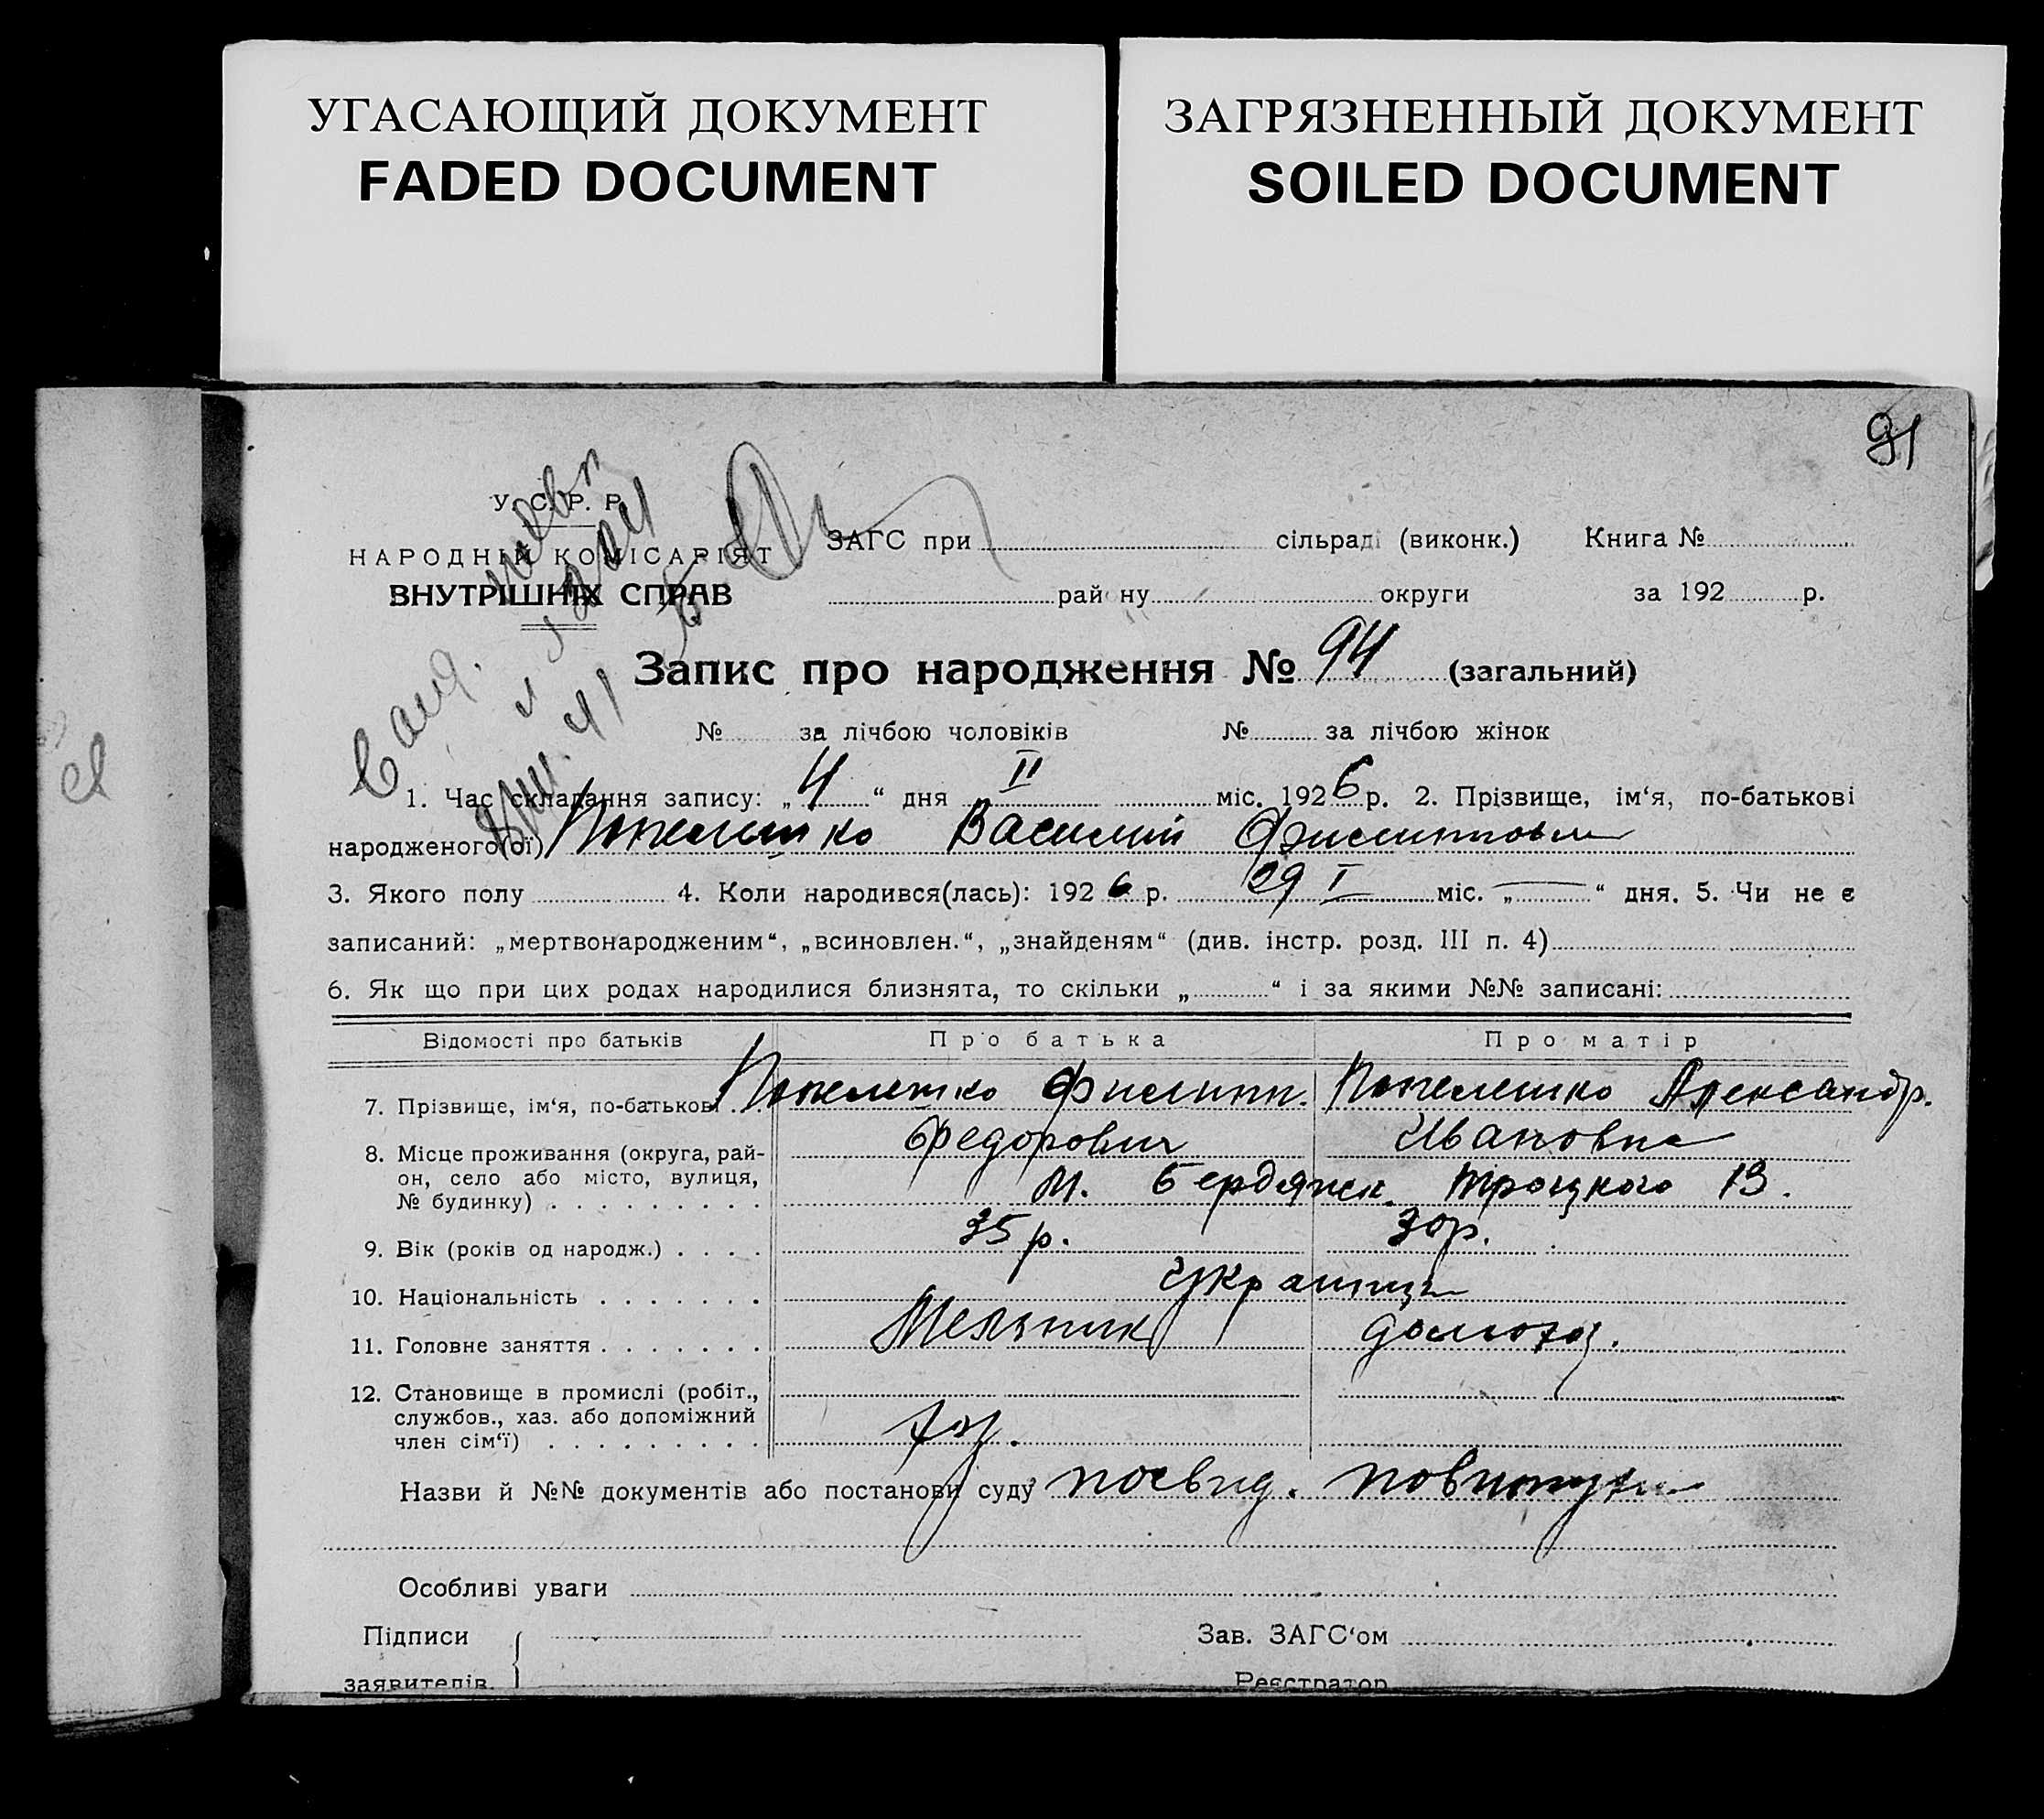 УГАСАЮЩИЙ ДОКУМЕНТ
FADED DOCUMENT
ЗАГРЯЗНЕННЫЙ ДОКУМЕНТ
SOILED DOCUMENT
91
У. С. Р. Р.
НАРОДНІЙ КОМІСАРІЯТ
ВНУТРІШНІХ СПРАВ
ЗАГС при сільраді (виконк.) Книга №
району округи за 192 р.
Запис про народження № 94 (загальний)
№ за лічбою чоловіків № за лічбою жінок
1. Час складання запису: „4“ дня II міс. 1926 р. 2. Прізвище, ім‘я, по-батькові
народженого(ої) Попелешко Василий
3. Якого полу 4. Коли народився(лась): 1926 р. 29 I міс. „—“ дня. 5. Чи не є
записаний: „мертвонародженим“, „всиновлен.“, „знайденям“ (див. інстр. розд. III п. 4)
6. Як що при цих родах народилися близнята, то скільки „ “ і за якими №№ записані:
Відомості про батьків Про батька Про матір
7. Прізвище, ім‘я, по-батькові Попелешко Филипп. Попелешко Александр.
Федорович Ивановна
8. Місце проживання (округа, рай-
он, село або місто, вулиця,
№ будинку) м. Бердянск. Троцкого 13.
9. Вік (років од народж.) 35 р. 30 р.
10. Національність Украинци
11. Головне заняття Мельник домохоз.
12. Становище в промислі (робіт.,
службов., хаз. або допоміжний
член сім‘ї) хоз.
Назви й №№ документів або постанови суду посвид.
Особливі уваги
Підписи Зав. ЗАГС‘ом
заявителів. Реєстратор